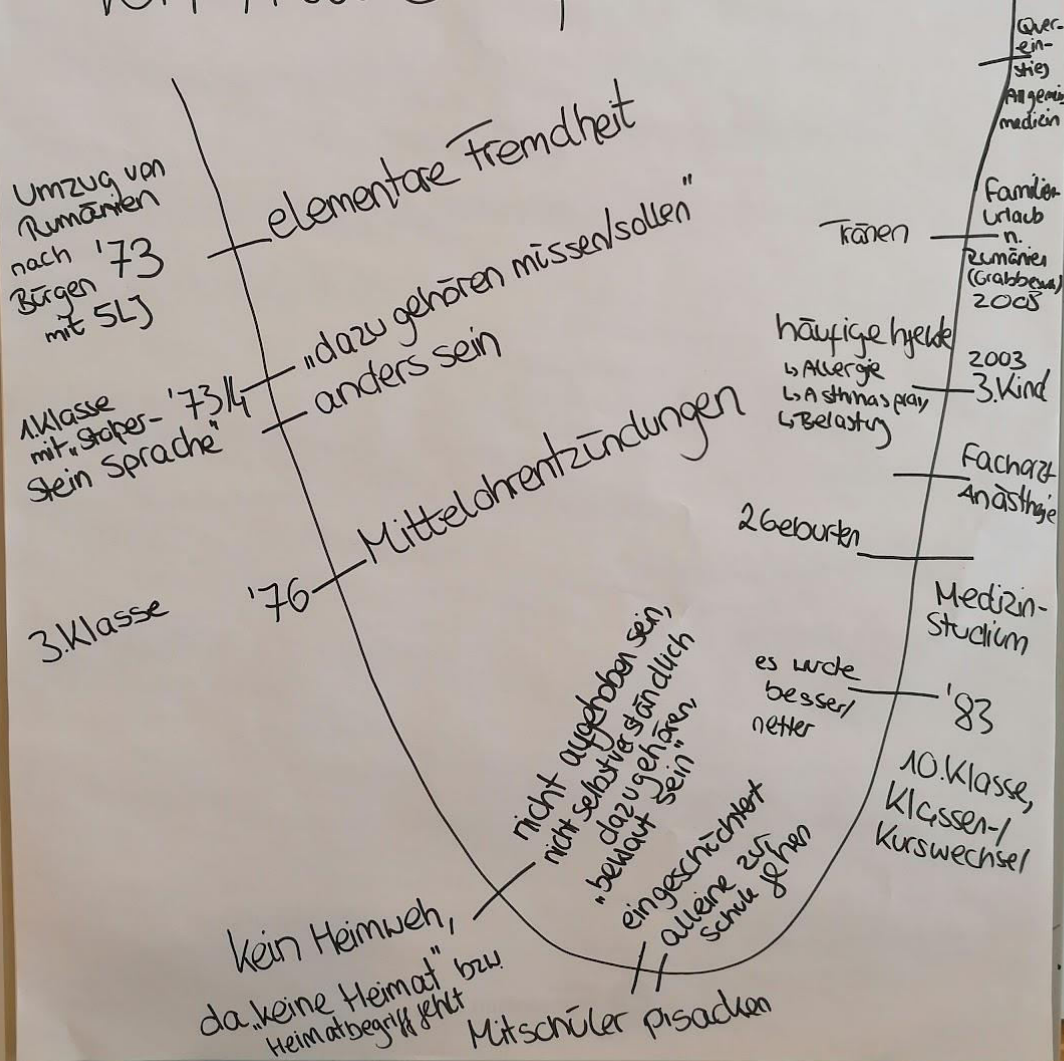 Umzug von
Rumänien
nach '73
Bürgen
mit 5LJ
elementare Fremdheit
1.Klasse
mit „Stolper-
stein Sprache"
'73/4
„dazu gehören müssen/sollen"
anders sein
3.Klasse
'76
Mittelohrentzündungen
kein Heimweh,
da „keine Heimat" bzw.
Heimatbegriff fehlt
nicht aufgehoben sein,
nicht selbstverständlich
dazugehören,
„beklaut sein"
eingeschüchtert
alleine zur
Schule gehen
Mitschüler pisacken
es wurde
besser/
netter
'83
10.Klasse,
Klassen-/
Kurswechsel
Medizin-
studium
2 Geburten
Facharzt
Anästhesie
häufige
↳ Allergie
↳ Asthmaspray
↳ Belastung
2003
3.Kind
Tränen
Familien
urlaub
n.
Rumänien
2005
Quer-
ein-
stieg
Allgemein
medizin